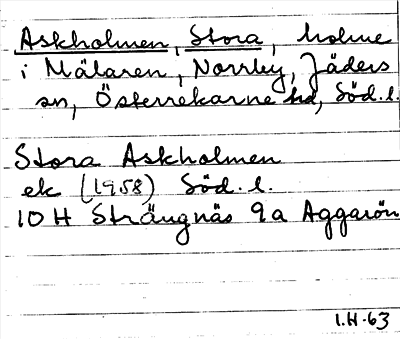 Askholmen, Stora, holme
i Mälaren, Norrby, Jäders
sn, Österrekarne hd, Söd. l.
Stora Askholmen
ek (1958) Söd. l.
10 H Strängnäs 9a Aggarön
1.H.63